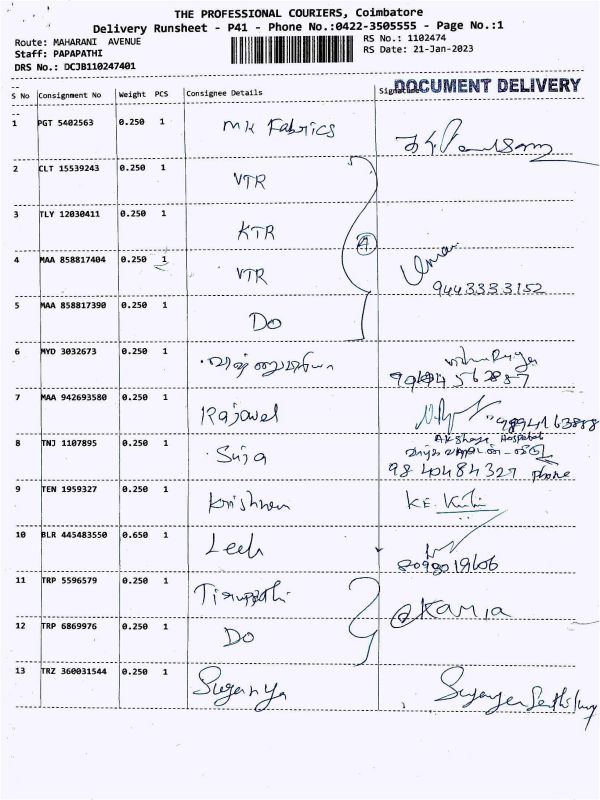 THE PROFESSIONAL COURIERS, Coimbatore
Delivery Runsheet - P41 - Phone No.:0422-3505555 - Page No.:1
Route: MAHARANI AVENUE
RS No.: 1102474
Staff: PAPAPATHI
RS Date: 21-Jan-2023
DRS No.: DCJB110247401
DOCUMENT DELIVERY
S No Consignment No Weight PCS Consignee Details Signature
1 PGT 5402563 0.250 1 MK Fabrics
2 CLT 15539243 0.250 1 VTR
3 TLY 12030411 0.250 1 KTR
4 MAA 858817404 0.250 1 VTR
9443333152
5 MAA 858817390 0.250 1 DO
6 MYD 3032673 0.250 1
7 MAA 942693580 0.250 1 Rajavel
8 TNJ 1107895 0.250 1 Suja
Hospital
9840484327 phone
9 TEN 1959327 0.250 1 Krishnan K.E.
10 BLR 445483550 0.650 1 Leela
8098019606
11 TRP 5596579 0.250 1 Tiruppathi
12 TRP 6869976 0.250 1 DO
13 TRZ 360031544 0.250 1 Suganya